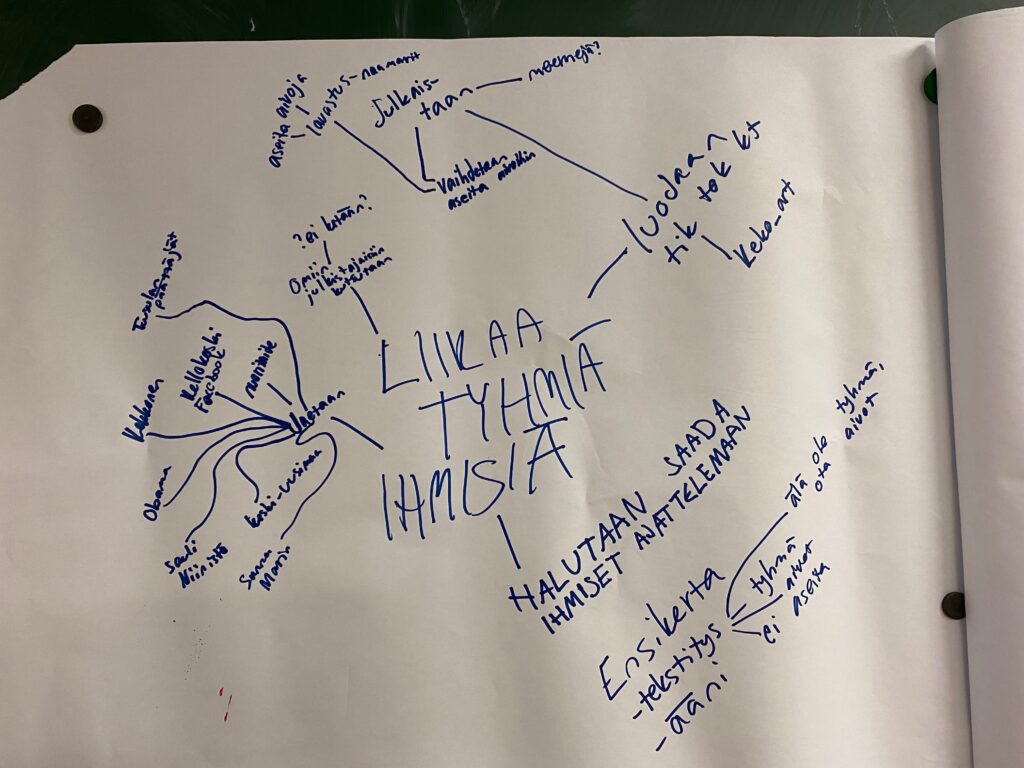 LIIKAA
TYHMIÄ
IHMISIÄ
Julkais-
taan
meemejä?
lavastus-naamarit
aseita aivoja
vaihdetaan
aseita aivoihin
luodaan
tik tok kt
keko_art
?ei ketään?
Omiin
julkaisijaisiin
kutsutaan
Tuusulanmäjät
päänäjät
Kellokoski
Facebook
nettimiite
Kakkonen
Obama
Sauli
Niinistö
Keski-uusimaa
Sanna
Marin
HALUTAAN SAADA
IHMISET AJATTELEMAAN
Ensikerta
-tekstitys
-ääni
älä ole tyhmä,
ota aivot
tyhmä
aivot
ei aseita